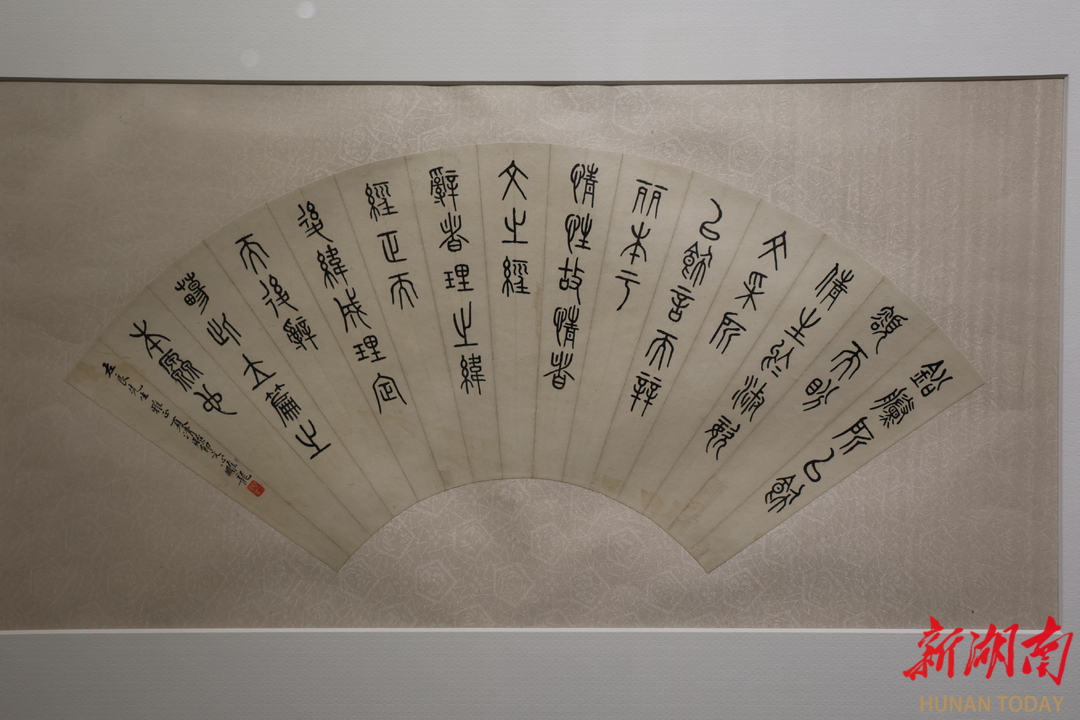 鉛黱所以飾
頌而盼
倩生於淑姿
文采所
以飾言而辯
丽本于
情性故情者
文之經
辭者理之緯
經正而
後緯成理定
而後辭
暢此立篇之
本原也
先生雅正 文心雕龍
新湖南
HUNAN TODAY